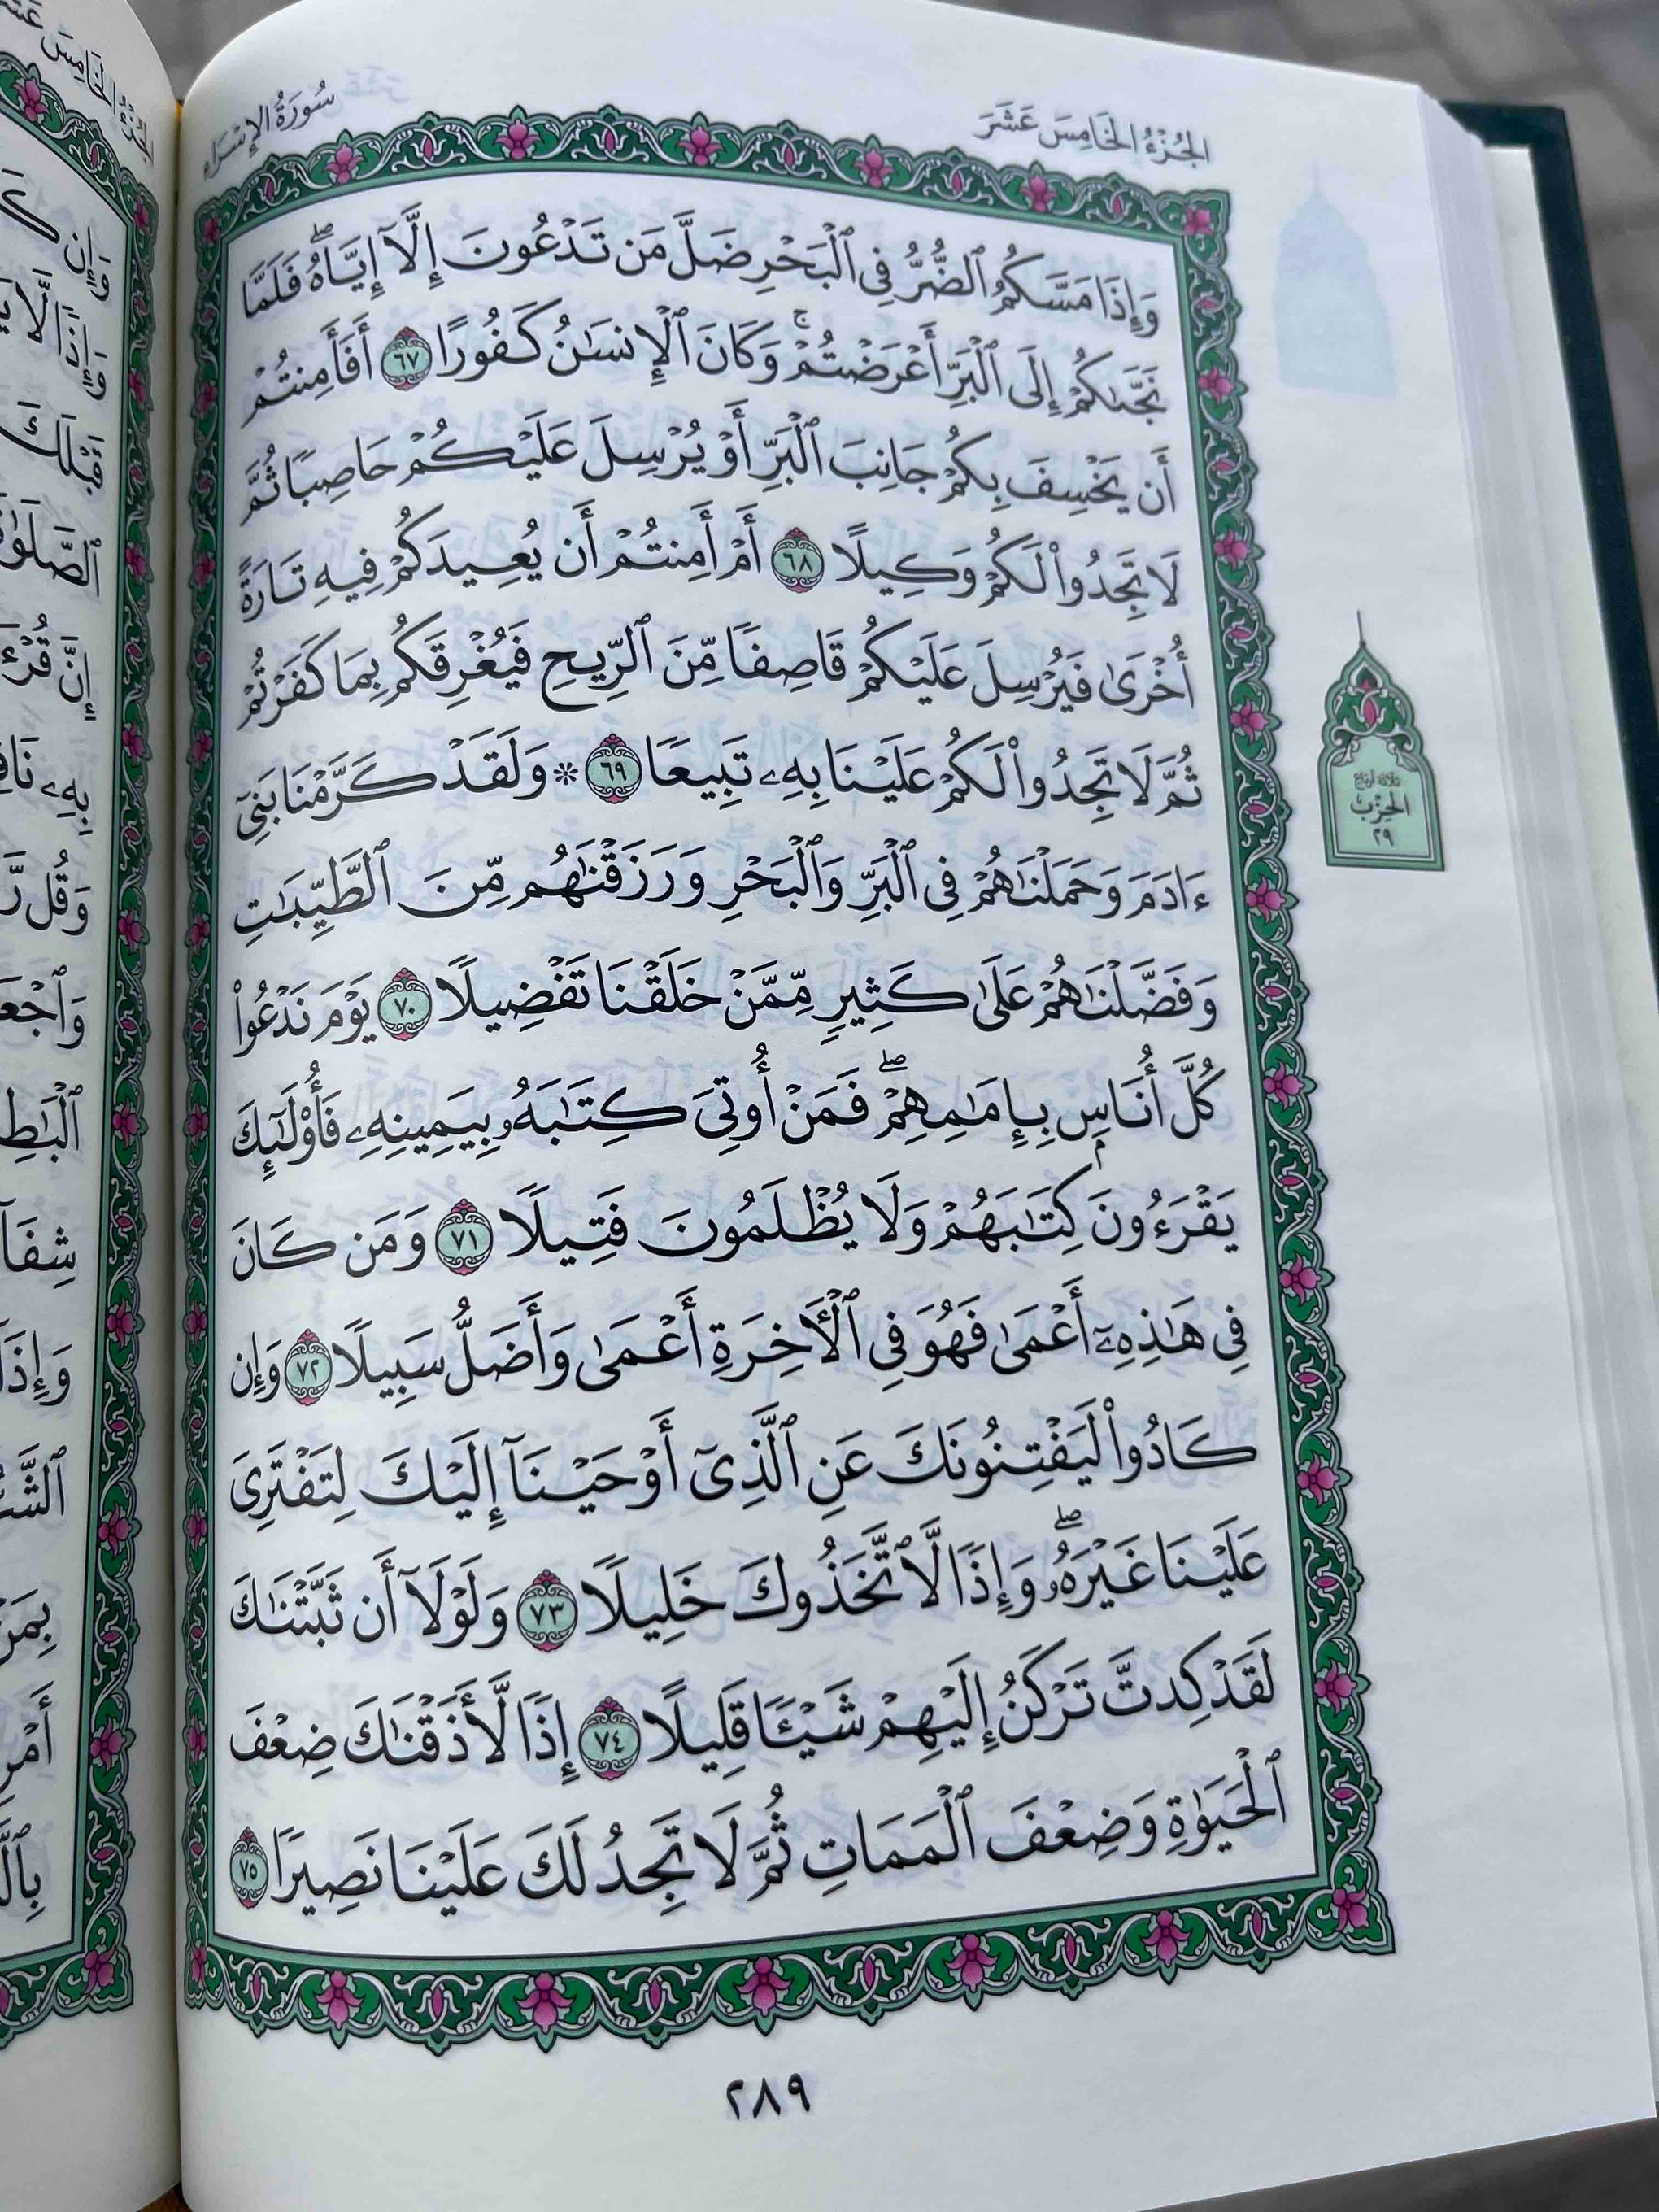 الجُزْءُ الخَامِسَ عَشَرَ
سُورَةُ الإِسْرَاءِ
وَإِذَا مَسَّكُمُ ٱلضُّرُّ فِى ٱلْبَحْرِ ضَلَّ مَن تَدْعُونَ إِلَّآ إِيَّاهُۖ فَلَمَّا
نَجَّىٰكُمْ إِلَى ٱلْبَرِّ أَعْرَضْتُمْۚ وَكَانَ ٱلْإِنسَٰنُ كَفُورًا ٦٧ أَفَأَمِنتُمْ
أَن يَخْسِفَ بِكُمْ جَانِبَ ٱلْبَرِّ أَوْ يُرْسِلَ عَلَيْكُمْ حَاصِبًا ثُمَّ
لَا تَجِدُوا۟ لَكُمْ وَكِيلًا ٦٨ أَمْ أَمِنتُمْ أَن يُعِيدَكُمْ فِيهِ تَارَةً
أُخْرَىٰ فَيُرْسِلَ عَلَيْكُمْ قَاصِفًا مِّنَ ٱلرِّيحِ فَيُغْرِقَكُم بِمَا كَفَرْتُمْ
ثُمَّ لَا تَجِدُوا۟ لَكُمْ عَلَيْنَا بِهِۦ تَبِيعًا ٦٩ * وَلَقَدْ كَرَّمْنَا بَنِىٓ
ءَادَمَ وَحَمَلْنَٰهُمْ فِى ٱلْبَرِّ وَٱلْبَحْرِ وَرَزَقْنَٰهُم مِّنَ ٱلطَّيِّبَٰتِ
وَفَضَّلْنَٰهُمْ عَلَىٰ كَثِيرٍ مِّمَّنْ خَلَقْنَا تَفْضِيلًا ٧٠ يَوْمَ نَدْعُوا۟
كُلَّ أُنَاسٍۭ بِإِمَٰمِهِمْۖ فَمَنْ أُوتِىَ كِتَٰبَهُۥ بِيَمِينِهِۦ فَأُو۟لَٰٓئِكَ
يَقْرَءُونَ كِتَٰبَهُمْ وَلَا يُظْلَمُونَ فَتِيلًا ٧١ وَمَن كَانَ
فِى هَٰذِهِۦٓ أَعْمَىٰ فَهُوَ فِى ٱلْأَخِرَةِ أَعْمَىٰ وَأَضَلُّ سَبِيلًا ٧٢ وَإِن
كَادُوا۟ لَيَفْتِنُونَكَ عَنِ ٱلَّذِىٓ أَوْحَيْنَآ إِلَيْكَ لِتَفْتَرِىَ
عَلَيْنَا غَيْرَهُۥۖ وَإِذًا لَّٱتَّخَذُوكَ خَلِيلًا ٧٣ وَلَوْلَآ أَن ثَبَّتْنَٰكَ
لَقَدْ كِدتَّ تَرْكَنُ إِلَيْهِمْ شَيْـًٔا قَلِيلًا ٧٤ إِذًا لَّأَذَقْنَٰكَ ضِعْفَ
ٱلْحَيَوٰةِ وَضِعْفَ ٱلْمَمَاتِ ثُمَّ لَا تَجِدُ لَكَ عَلَيْنَا نَصِيرًا ٧٥
ثلاثة أرباع
الحِزْب
٢٩
٢٨٩
الجُزْءُ الخَامِسَ
وَإِن
وَإِذًا لَّا
قَبْلَكَ
إِنَّ
بِهِۦ
وَقُل
وَإِذَا